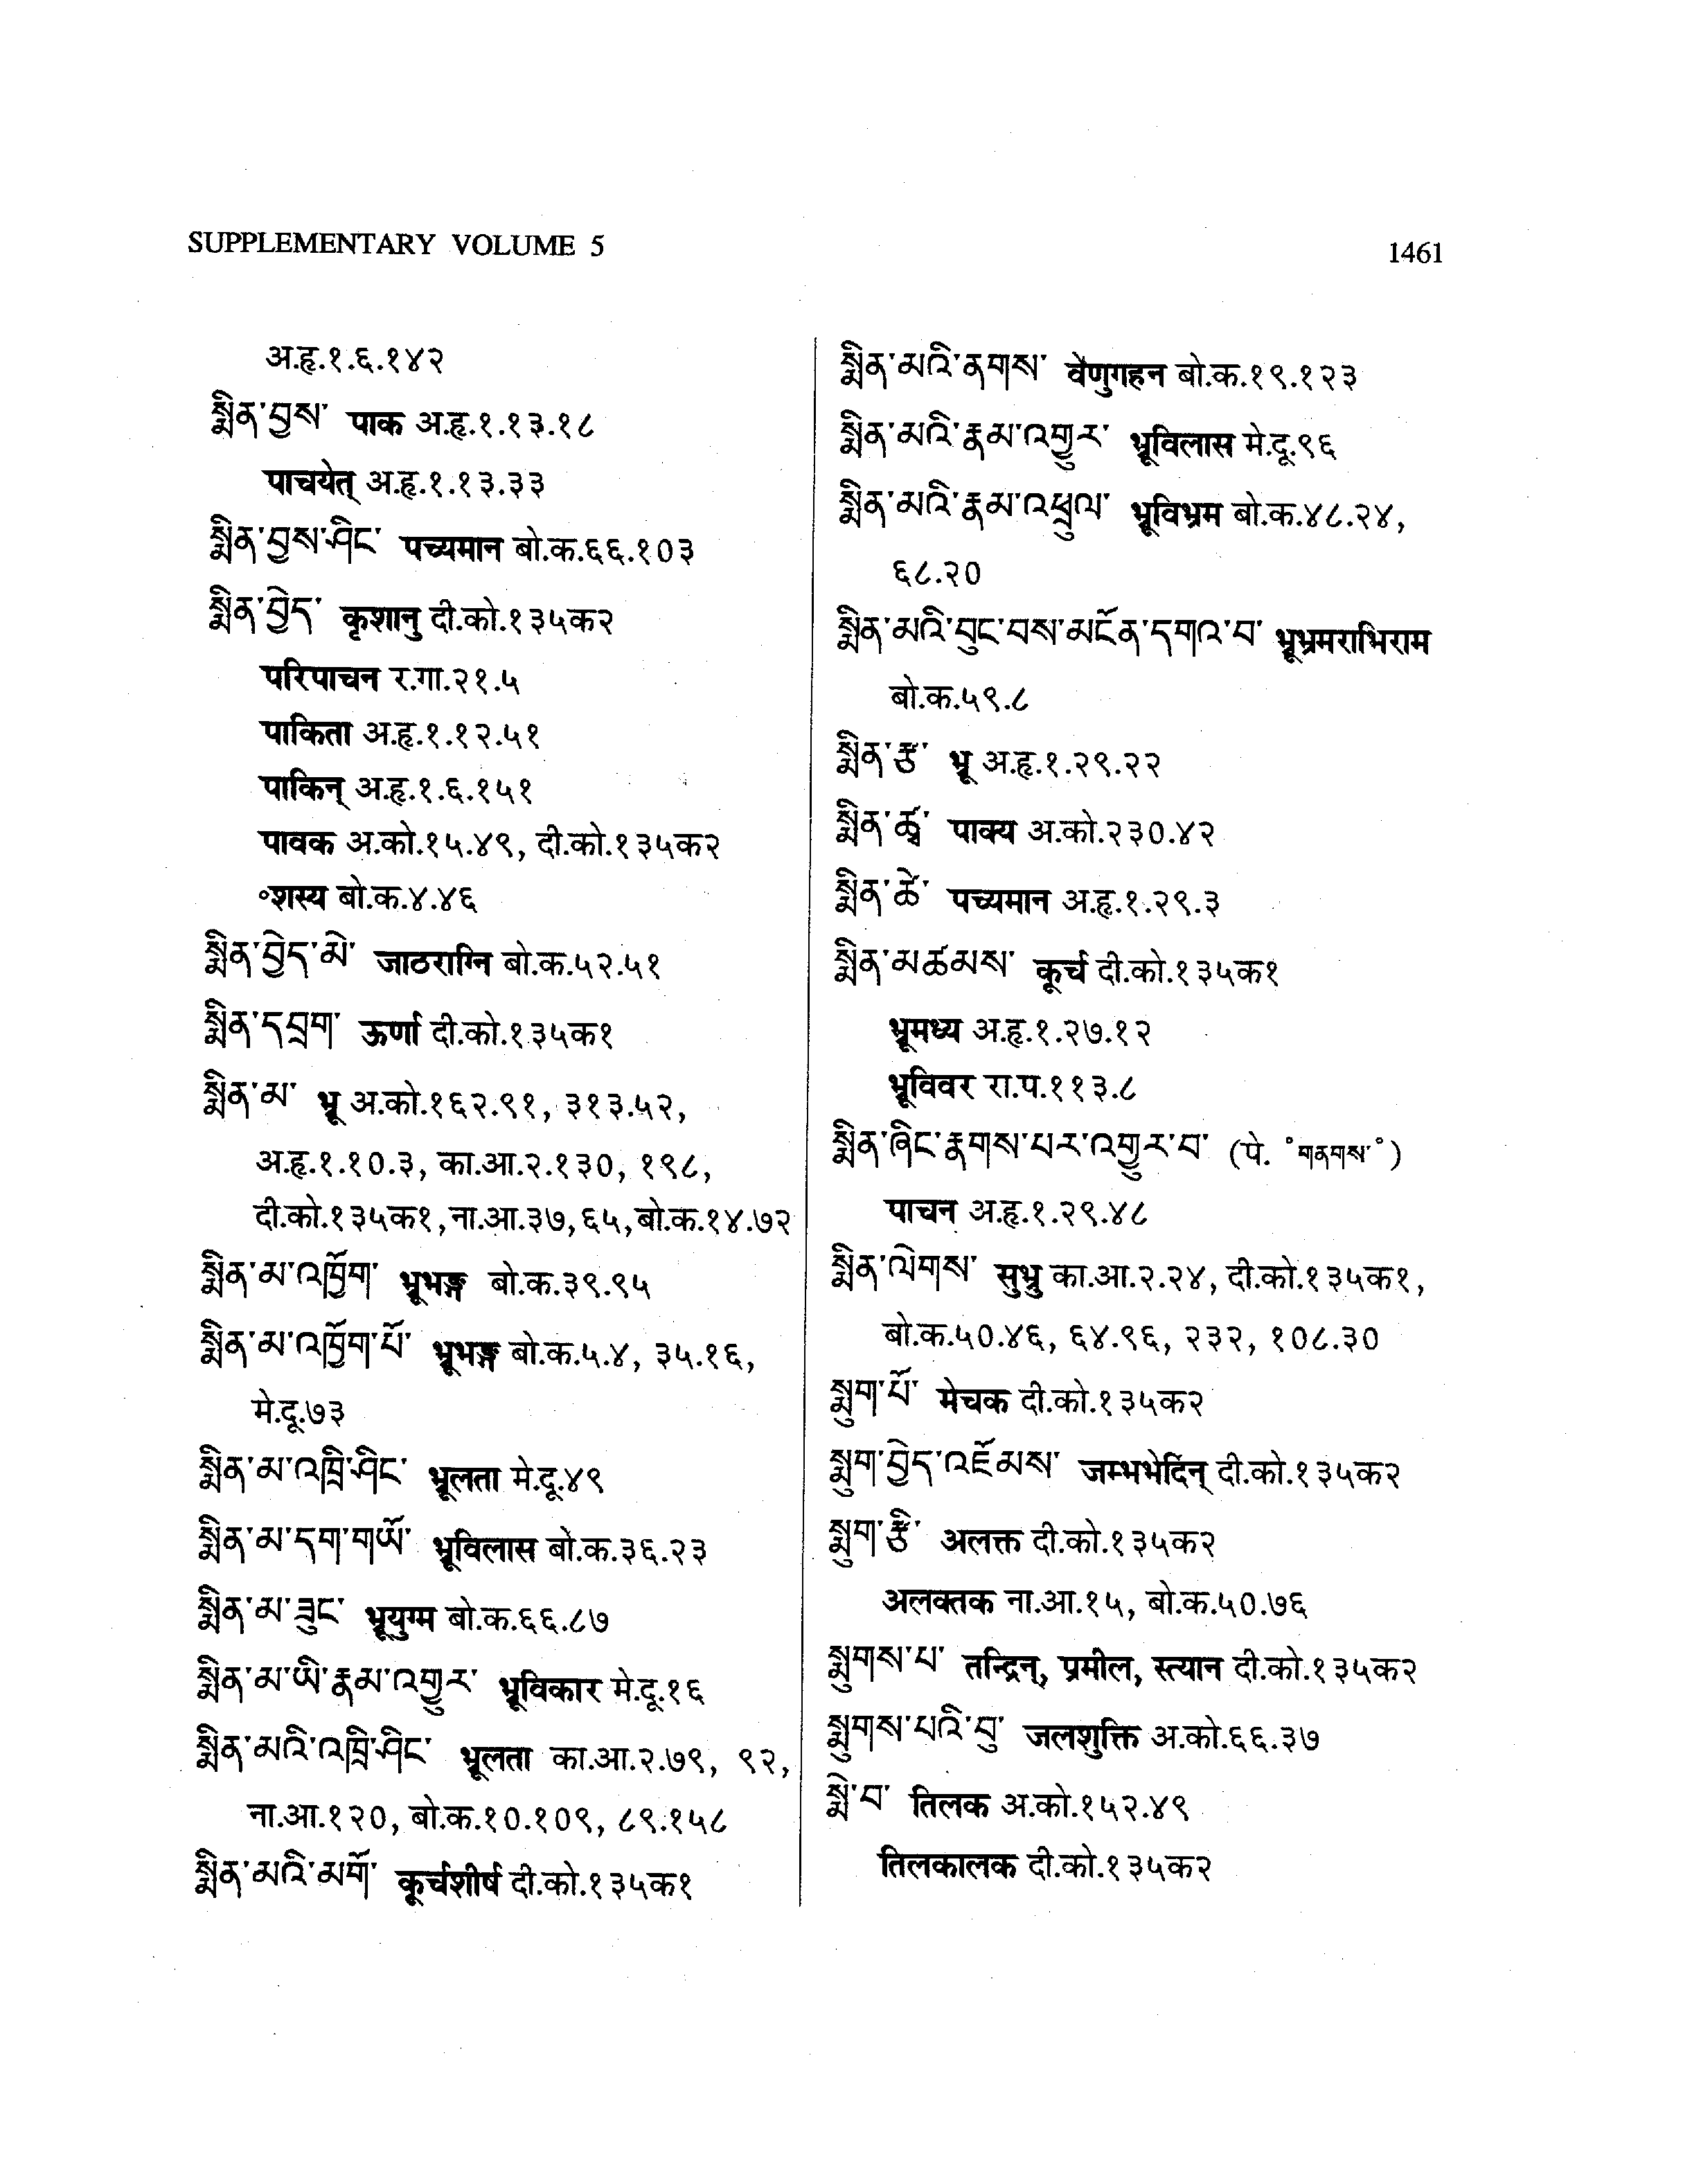 SUPPLEMENTARY VOLUME 5
1461
अ.हृ.१.६.१४२
སྨིན་བྱས་ पाक अ.हृ.१.१३.१८
पाचयेत् अ.हृ.१.१३.३३
སྨིན་བྱས་ཤིང་ पच्यमान बो.क.६६.१०३
སྨིན་བྱེད་ कृशानु दी.को.१३५क२
परिपाचन र.गा.२१.५
पाकिता अ.हृ.१.१२.५१
पाकिन् अ.हृ.१.६.१५१
पावक अ.को.१५.४९, दी.को.१३५क२
॰शस्य बो.क.४.४६
སྨིན་བྱེད་མེ་ जाठराग्नि बो.क.५२.५१
སྨིན་དབྲག་ ऊर्णा दी.को.१३५क१
སྨིན་མ་ भ्रू अ.को.१६२.९१, ३१३.५२,
अ.हृ.१.१०.३, का.आ.२.१३०, १९८,
दी.को.१३५क१, ना.आ.३७, ६५, बो.क.१४.७२
སྨིན་མ་འཁྱོག་ भ्रूभङ्ग बो.क.३९.९५
སྨིན་མ་འཁྱོག་པོ་ भ्रूभङ्ग बो.क.५.४, ३५.१६,
मे.दू.७३
སྨིན་མ་འཁྲི་ཤིང་ भ्रूलता मे.दू.४९
སྨིན་མ་དག་གཡོ་ भ्रूविलास बो.क.३६.२३
སྨིན་མ་ཟུང་ भ्रूयुग्म बो.क.६६.८७
སྨིན་མ་ཡི་རྣམ་འགྱུར་ भ्रूविकार मे.दू.१६
སྨིན་མའི་འཁྲི་ཤིང་ भ्रूलता का.आ.२.७९, ९२,
ना.आ.१२०, बो.क.१०.१०९, ८९.१५८
སྨིན་མའི་མགོ་ कूर्चशीर्ष दी.को.१३५क१
སྨིན་མའི་ནགས་ वेणुगहन बो.क.१९.१२३
སྨིན་མའི་རྣམ་འགྱུར་ भ्रूविलास मे.दू.९६
སྨིན་མའི་རྣམ་འཕྲུལ་ भ्रूविभ्रम बो.क.४८.२४,
६८.२०
སྨིན་མའི་བུང་བས་མངོན་དགའ་བ་ भ्रूभ्रमराभिराम
बो.क.५९.८
སྨིན་རྩ་ भ्रू अ.हृ.१.२९.२२
སྨིན་ཚྭ་ पाक्य अ.को.२३०.४२
སྨིན་ཚེ་ पच्यमान अ.हृ.१.२९.३
སྨིན་མཚམས་ कूर्च दी.को.१३५क१
भ्रूमध्य अ.हृ.१.२७.१२
भ्रूविवर रा.प.११३.८
སྨིན་ཞིང་རྣགས་པར་འགྱུར་བ་ (पे. ॰གནགས་॰)
पाचन अ.हृ.१.२९.४८
སྨིན་ལེགས་ सुभ्रु का.आ.२.२४, दी.को.१३५क१,
बो.क.५०.४६, ६४.९६, २३२, १०८.३०
སྨུག་པོ་ मेचक दी.को.१३५क२
སྨུག་བྱེད་འཇོམས་ जम्भभेदिन् दी.को.१३५क२
སྨུག་རྩི་ अलक्त दी.को.१३५क२
अलक्तक ना.आ.१५, बो.क.५०.७६
སྨུགས་པ་ तन्द्रिन्, प्रमील, स्त्यान दी.को.१३५क२
སྨུགས་པའི་བུ་ जलशुक्ति अ.को.६६.३७
སྨེ་བ་ तिलक अ.को.१५२.४९
तिलकालक दी.को.१३५क२